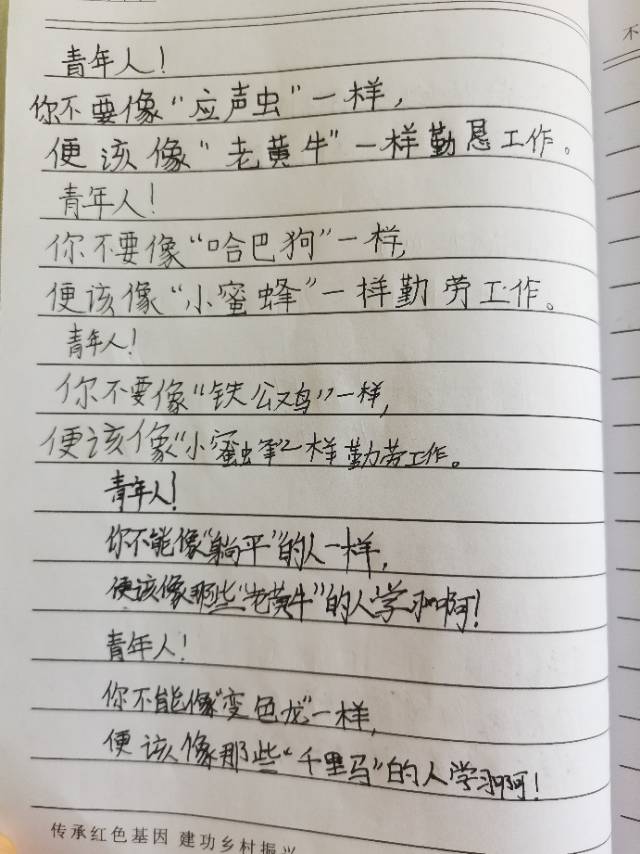 青年人！
你不要像“应声虫”一样，
便该像“老黄牛”一样勤恳工作。
青年人！
你不要像“哈巴狗”一样，
便该像“小蜜蜂”一样勤劳工作。
青年人！
你不要像“铁公鸡”一样，
便该像“小蜜蜂”一样勤劳工作。
青年人！
你不能像“躺平”的人一样，
便该像那些“老黄牛”的人学习啊！
青年人！
你不能像“变色龙”一样，
便该像那些“千里马”的人学习啊！
传承红色基因 建功乡村振兴
不